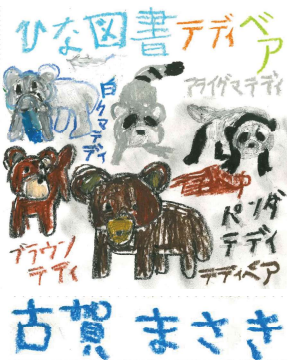 ひな図書テディベア
白クマテディ
アライグマテディ
パンダ
テディ
ブラウン
テディ
テディベア
古賀 まさき